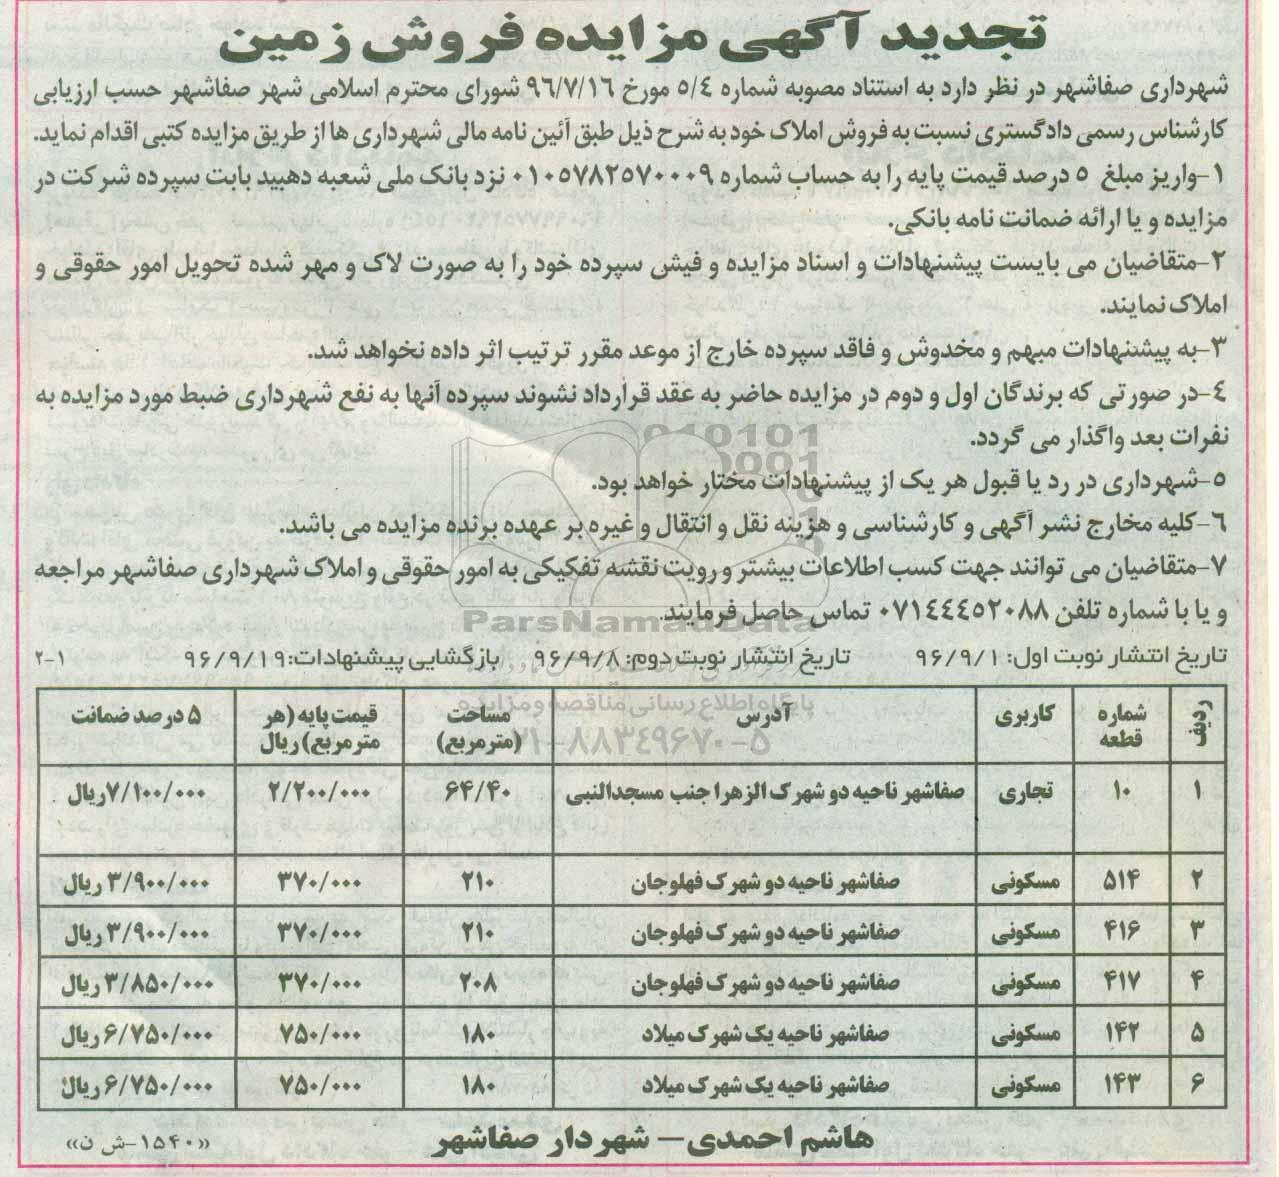 تجدید آگهی مزایده فروش زمین
شهرداری صفاشهر در نظر دارد به استناد مصوبه شماره ۵/۴ مورخ ۹۶/۷/۱۶ شورای محترم اسلامی شهر صفاشهر حسب ارزیابی
کارشناس رسمی دادگستری نسبت به فروش املاک خود به شرح ذیل طبق آئین نامه مالی شهرداری ها از طریق مزایده کتبی اقدام نماید.
۱-واریز مبلغ ۵ درصد قیمت پایه را به حساب شماره ۰۱۰۵۷۸۲۵۷۰۰۰۹ نزد بانک ملی شعبه دهبید بابت سپرده شرکت در
مزایده و یا ارائه ضمانت نامه بانکی.
۲-متقاضیان می بایست پیشنهادات و اسناد مزایده و فیش سپرده خود را به صورت لاک و مهر شده تحویل امور حقوقی و
املاک نمایند.
۳-به پیشنهادات مبهم و مخدوش و فاقد سپرده خارج از موعد مقرر ترتیب اثر داده نخواهد شد.
۴-در صورتی که برندگان اول و دوم در مزایده حاضر به عقد قرارداد نشوند سپرده آنها به نفع شهرداری ضبط مورد مزایده به
نفرات بعد واگذار می گردد.
۵-شهرداری در رد یا قبول هر یک از پیشنهادات مختار خواهد بود.
۶-کلیه مخارج نشر آگهی و کارشناسی و هزینه نقل و انتقال و غیره بر عهده برنده مزایده می باشد.
۷-متقاضیان می توانند جهت کسب اطلاعات بیشتر و رویت نقشه تفکیکی به امور حقوقی و املاک شهرداری صفاشهر مراجعه
و یا با شماره تلفن ۰۷۱۴۴۴۵۲۰۸۸ تماس حاصل فرمایند.
تاریخ انتشار نوبت اول: ۹۶/۹/۱ تاریخ انتشار نوبت دوم: ۹۶/۹/۸ بازگشایی پیشنهادات: ۹۶/۹/۱۹ ۲-۱
ردیف شماره قطعه کاربری آدرس مساحت (مترمربع) قیمت پایه (هر مترمربع) ریال ۵ درصد ضمانت
۱ ۱۰ تجاری صفاشهر ناحیه دو شهرک الزهرا جنب مسجدالنبی ۶۴/۴۰ ۲/۲۰۰/۰۰۰ ۷/۱۰۰/۰۰۰ ریال
۲ ۵۱۴ مسکونی صفاشهر ناحیه دو شهرک فهلوجان ۲۱۰ ۳۷۰/۰۰۰ ۳/۹۰۰/۰۰۰ ریال
۳ ۴۱۶ مسکونی صفاشهر ناحیه دو شهرک فهلوجان ۲۱۰ ۳۷۰/۰۰۰ ۳/۹۰۰/۰۰۰ ریال
۴ ۴۱۷ مسکونی صفاشهر ناحیه دو شهرک فهلوجان ۲۰۸ ۳۷۰/۰۰۰ ۳/۸۵۰/۰۰۰ ریال
۵ ۱۴۲ مسکونی صفاشهر ناحیه یک شهرک میلاد ۱۸۰ ۷۵۰/۰۰۰ ۶/۷۵۰/۰۰۰ ریال
۶ ۱۴۳ مسکونی صفاشهر ناحیه یک شهرک میلاد ۱۸۰ ۷۵۰/۰۰۰ ۶/۷۵۰/۰۰۰ ریال
هاشم احمدی – شهردار صفاشهر
«۱۵۴۰-ش ن»
ParsNamadData
پایگاه اطلاع رسانی مناقصه و مزایده
۰۲۱-۸۸۳۴۹۶۷۰-۵